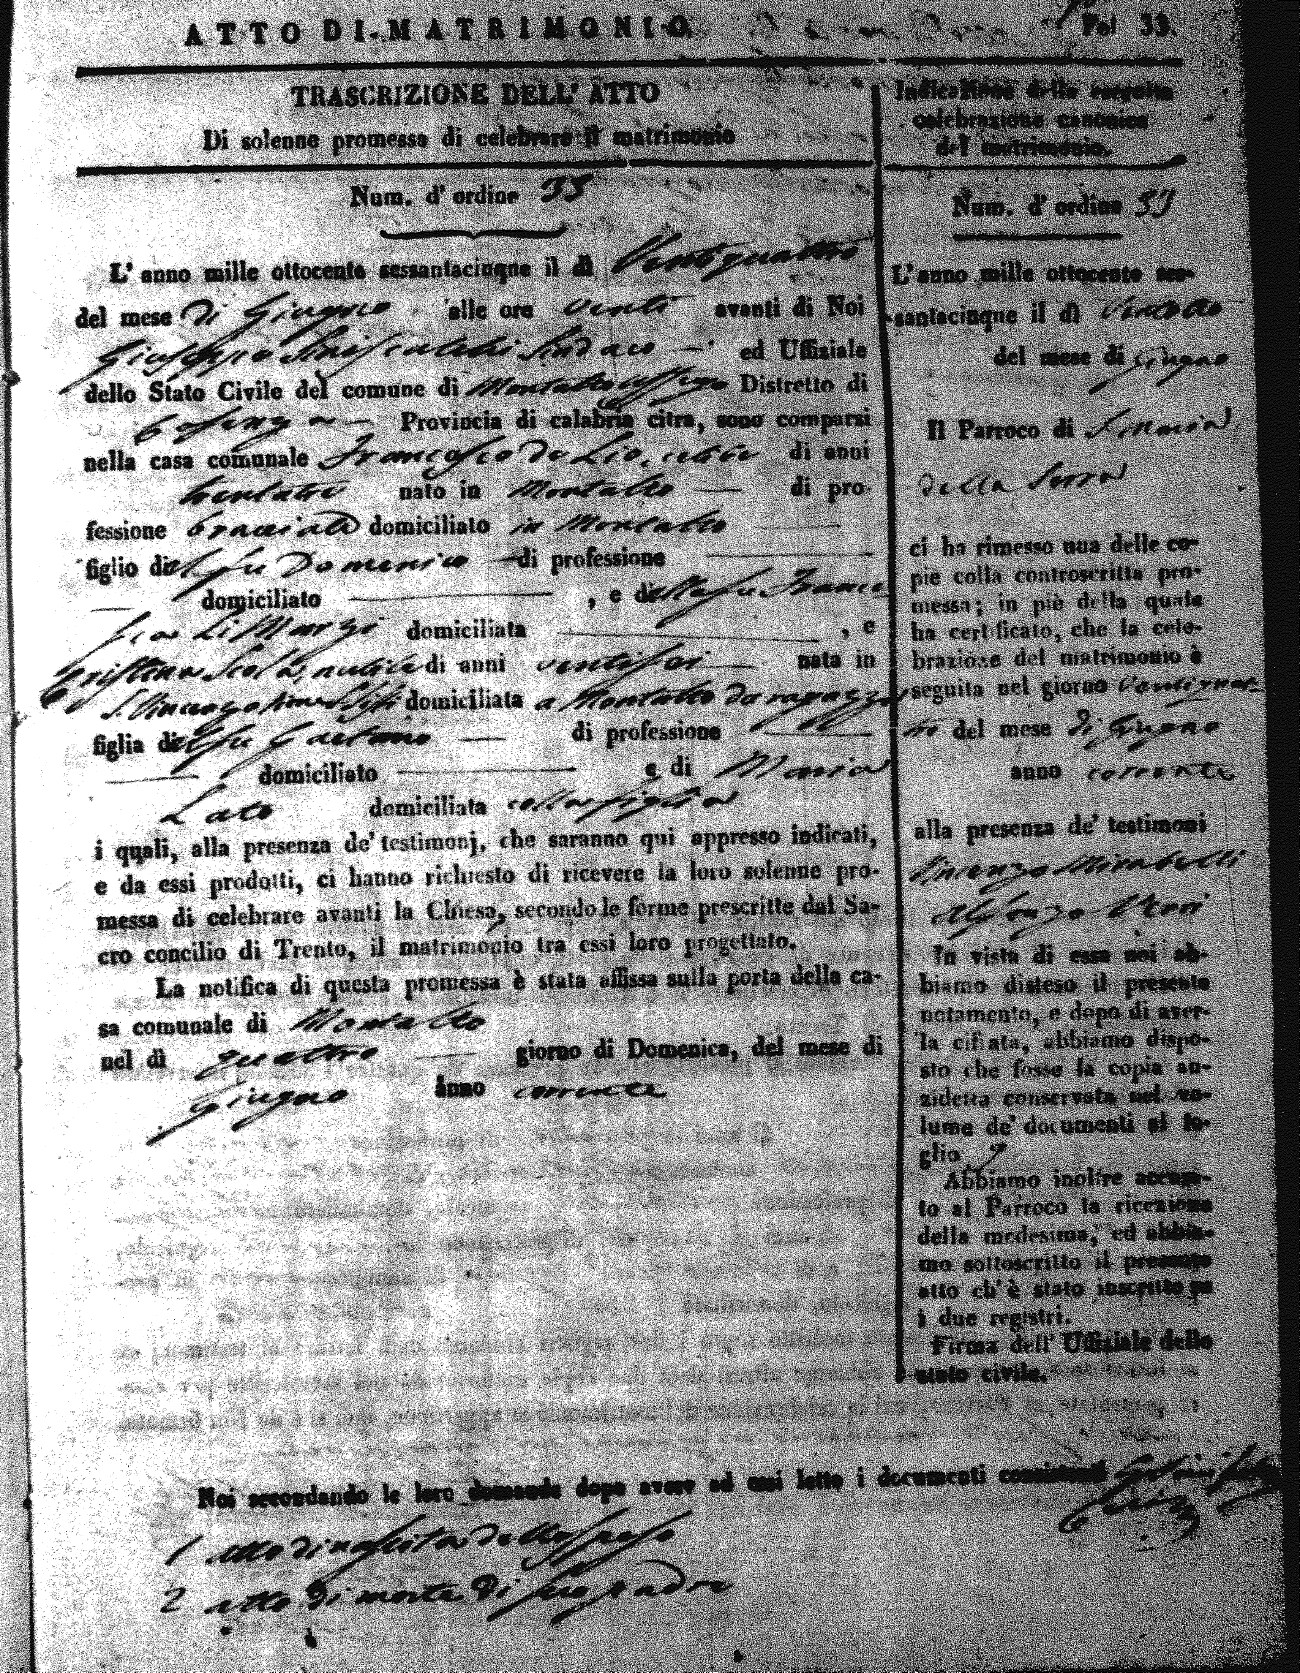 ATTO DI MATRIMONIO
Fol 33.
TRASCRIZIONE DELL' ATTO
Di solenne promessa di celebrare il matrimonio
Num. d' ordine 33
L' anno mille ottocento sessantacinque il dì Ventiquattro
del mese di Giugno alle ore venti avanti di Noi
Giuseppe Siniscalchi Sindaco ed Uffiziale
dello Stato Civile del comune di Montalto Uffugo Distretto di
Cosenza Provincia di calabria citra, sono comparsi
nella casa comunale Francesco de Lio, celibe di anni
trentatre nato in Montalto di pro-
fessione bracciale domiciliato in Montalto
figlio di fu Domenico di professione
domiciliato , e di fu France
sca Li Marzi domiciliata , e
Cristina nubile di anni ventisei nata in
S. Vincenzo domiciliata a Montalto da ragazza
figlia di fu Gaetano di professione
domiciliato e di Maria
Lato domiciliata colla figlia
i quali, alla presenza de' testimonj, che saranno qui appresso indicati,
e da essi prodotti, ci hanno richiesto di ricevere la loro solenne pro-
messa di celebrare avanti la Chiesa, secondo le forme prescritte dal Sa-
cro concilio di Trento, il matrimonio tra essi loro progettato.
La notifica di questa promessa è stata affissa sulla porta della ca-
sa comunale di Montalto
nel dì quattro giorno di Domenica, del mese di
Giugno anno corrente
Indicazione della seguita
celebrazione canonica
del matrimonio.
Num. d' ordine 33
L' anno mille ottocento ses-
santacinque il dì
del mese di Giugno
Il Parroco di S. Maria
della Serra
ci ha rimesso una delle co-
pie colla controscritta pro-
messa; in piè della quale
ha certificato, che la cele-
brazione del matrimonio è
seguita nel giorno ventiquat
tro del mese di Giugno
anno corrente
alla presenza de' testimoni
Vincenzo Mirabelli
Alfonzo
In vista di essa noi ab-
biamo disteso il presente
notamento, e dopo di aver-
la cifrata, abbiamo dispo-
sto che fosse la copia an-
zidetta conservata nel vo-
lume de' documenti al fo-
glio
Abbiamo inoltre accusa-
to al Parroco la ricezione
della medesima, ed abbia-
mo sottoscritto il presente
atto ch' è stato inscritto su
i due registri.
Firma dell' Uffiziale dello
stato civile.
Noi secondando le loro domande dopo avere ad essi letto i documenti consistenti
1 Atto di nascita dello sposo
2 atto di morte di suo padre